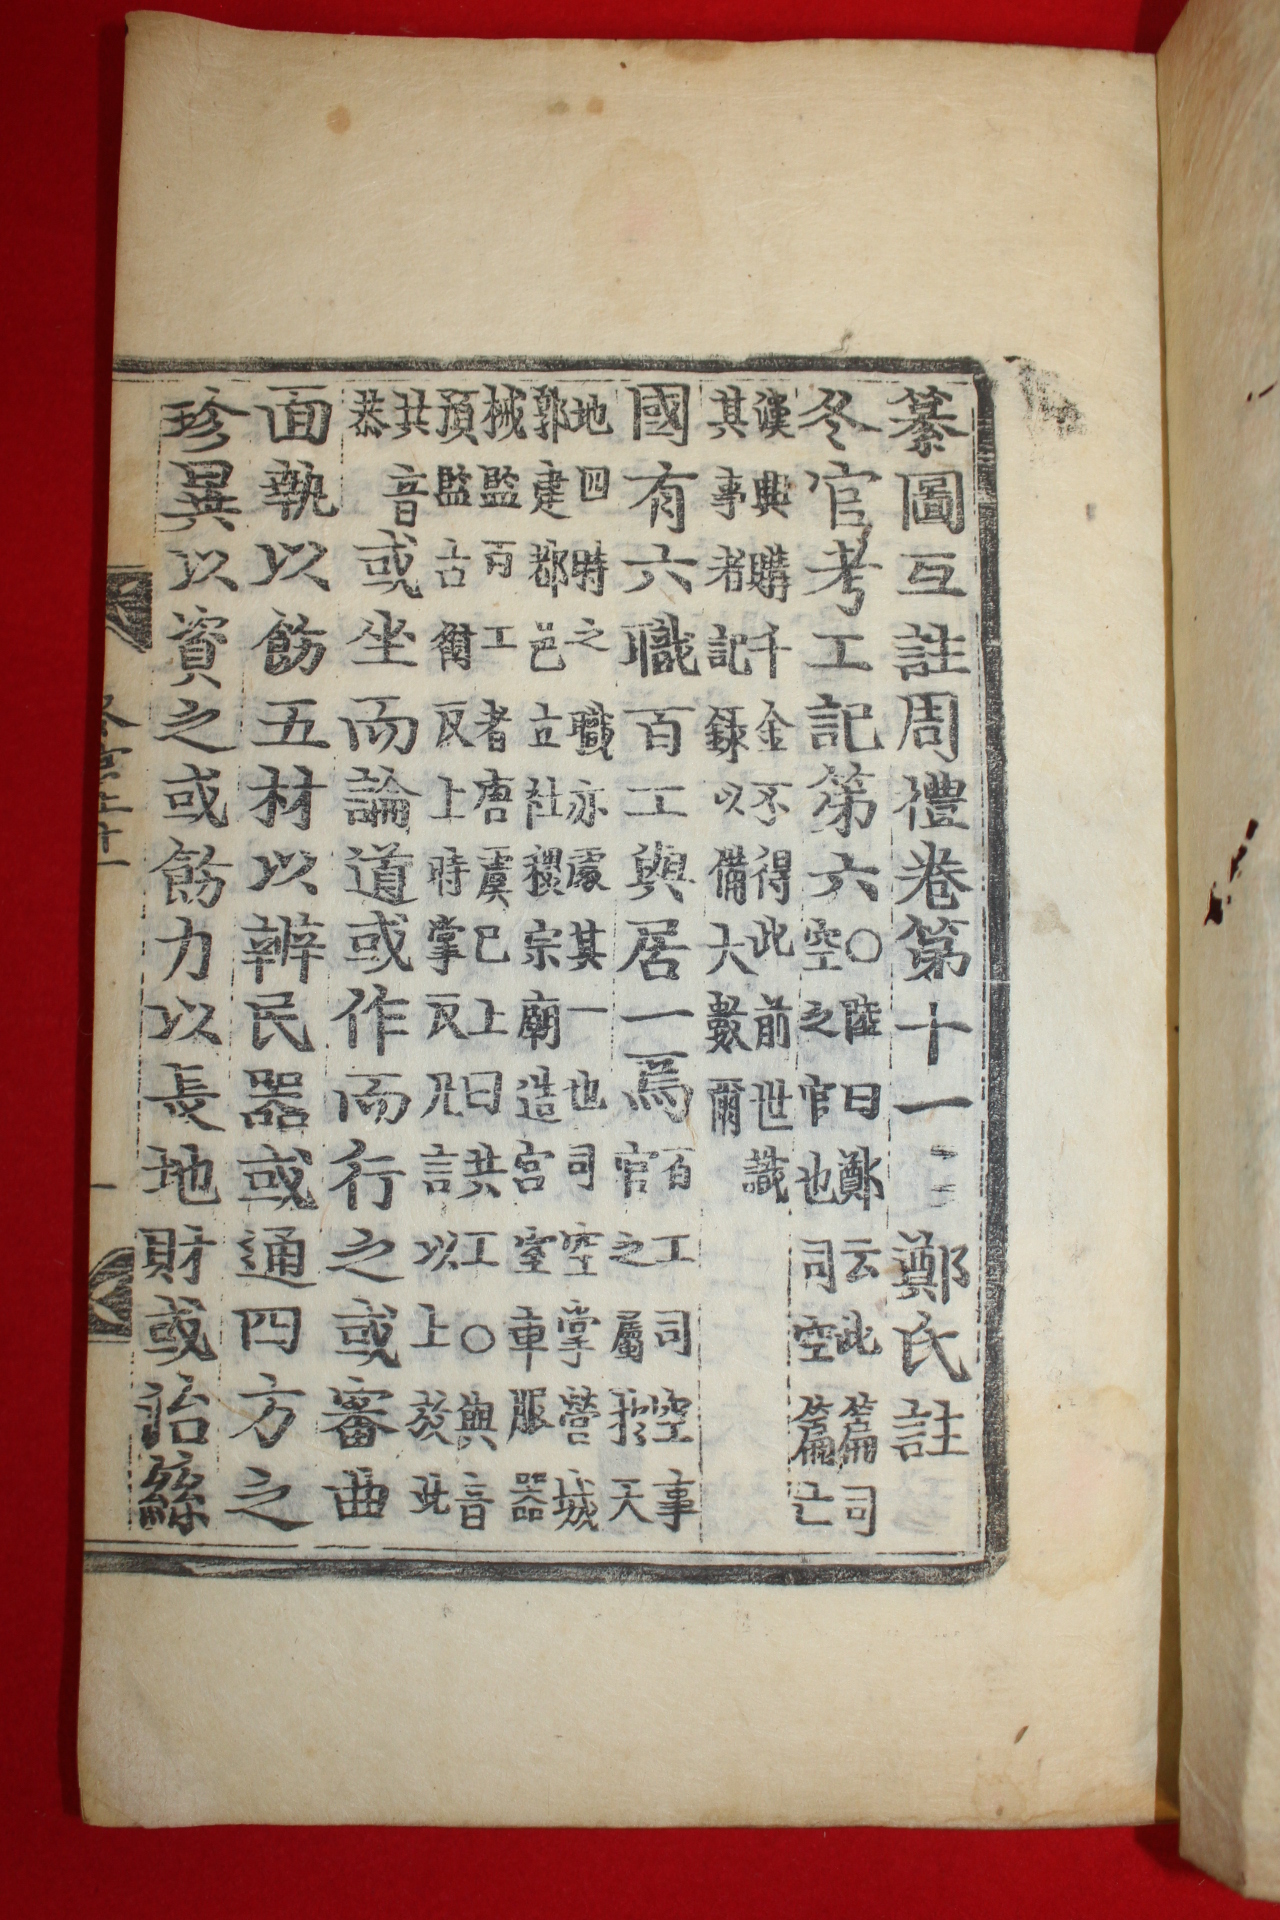 纂圖互註周禮卷第十一
鄭氏註
冬官考工記第六
○陸曰鄭云此篇司
空之官也司空篇亡
漢興購千金不得此前世識
其事者記錄以備大數爾
國有六職百工與居一焉
百工司空事
官之屬於天
地四時之職亦處其一也司空掌營城
郭建都邑立社稷宗廟造宮室車服器
械監百工者唐虞已上曰共工○與音
預監古銜反上時掌反凡言以上放此
共音
恭
或坐而論道或作而行之或審曲
面執以飭五材以辨民器或通四方之
珍異以資之或飭力以長地財或治絲